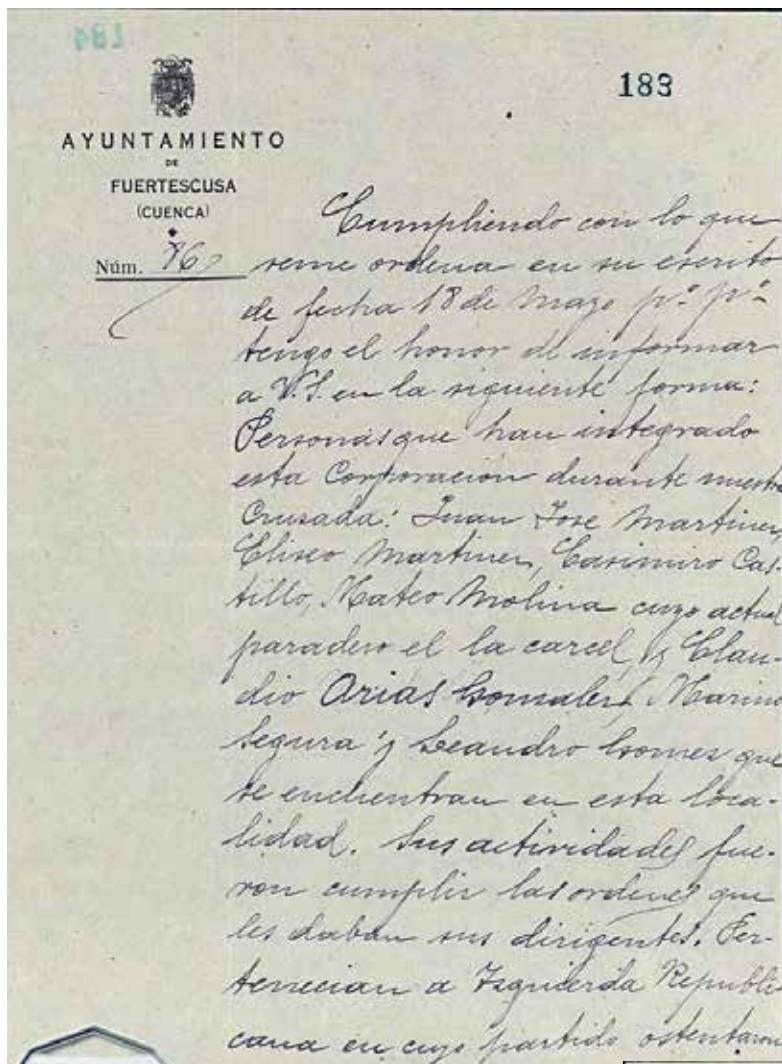 183
AYUNTAMIENTO
DE
FUERTESCUSA
(CUENCA)
Núm. 76
Cumpliendo con lo que
seme ordena en su escrito
de fecha 18 de Mayo pº pº
tengo el honor de informar
a V.S. en la siguiente forma:
Personas que han integrado
esta Corporación durante nuestra
Crusada: Juan Jose Martines,
Eliseo Martines, Casimiro Cas-
tillo, Mateo Molina cuyo actual
paradero el la carcel, y Clau-
dio Arias Gonzales, Marino
Segura y Leandro Gomes que
se encuentran en esta loca-
lidad. Sus actividades fue-
ron cumplir las ordenes que
les daban sus dirigentes. Per-
tenecian a Isquierda Republi-
cana en cuyo partido ostentaron